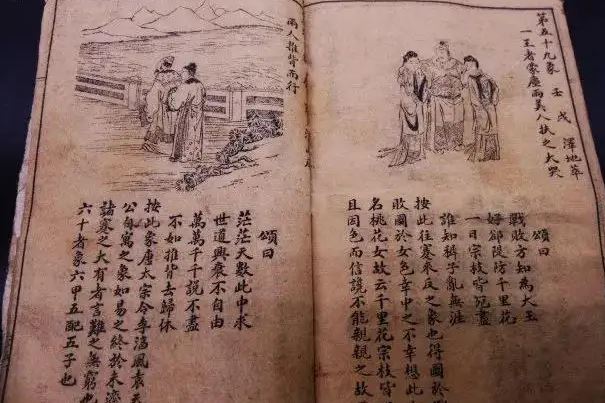 第五十九象 壬戌 澤地萃
一王者蒙塵兩美人扶之大哭
頌曰
戰敗方知為大王
好卻隄防千里花
一日宗枝皆荒盡
誰知稗子亂無涯
按此往蹇來反之象也得國於
敗國於女色幸中之不幸想此
名桃花女故云千里花宗枝皆
且因色而信讒不能親親之故
兩人推背而行
頌曰
茫茫天數此中求
世道興衰不自由
萬萬千千說不盡
不如推背去歸休
按此象唐太宗令李淳風袁天
公自寓之象如易之終於未濟
諸蹇之大有者言難之無窮也
六十者象六甲五配五子也